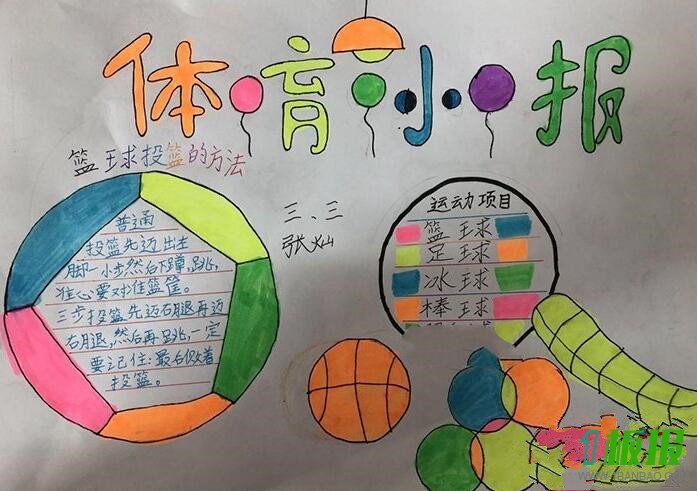 体育小报
篮球投篮的方法
普通
投篮先迈出左
脚一小步然后下蹲,跳,
准心要对准篮筐。
三步投篮先迈右腿再迈
右腿,然后再跳,一定
要记住:最后做着
投篮。
三、三
张灿
运动项目
篮球
足球
冰球
棒球
板报